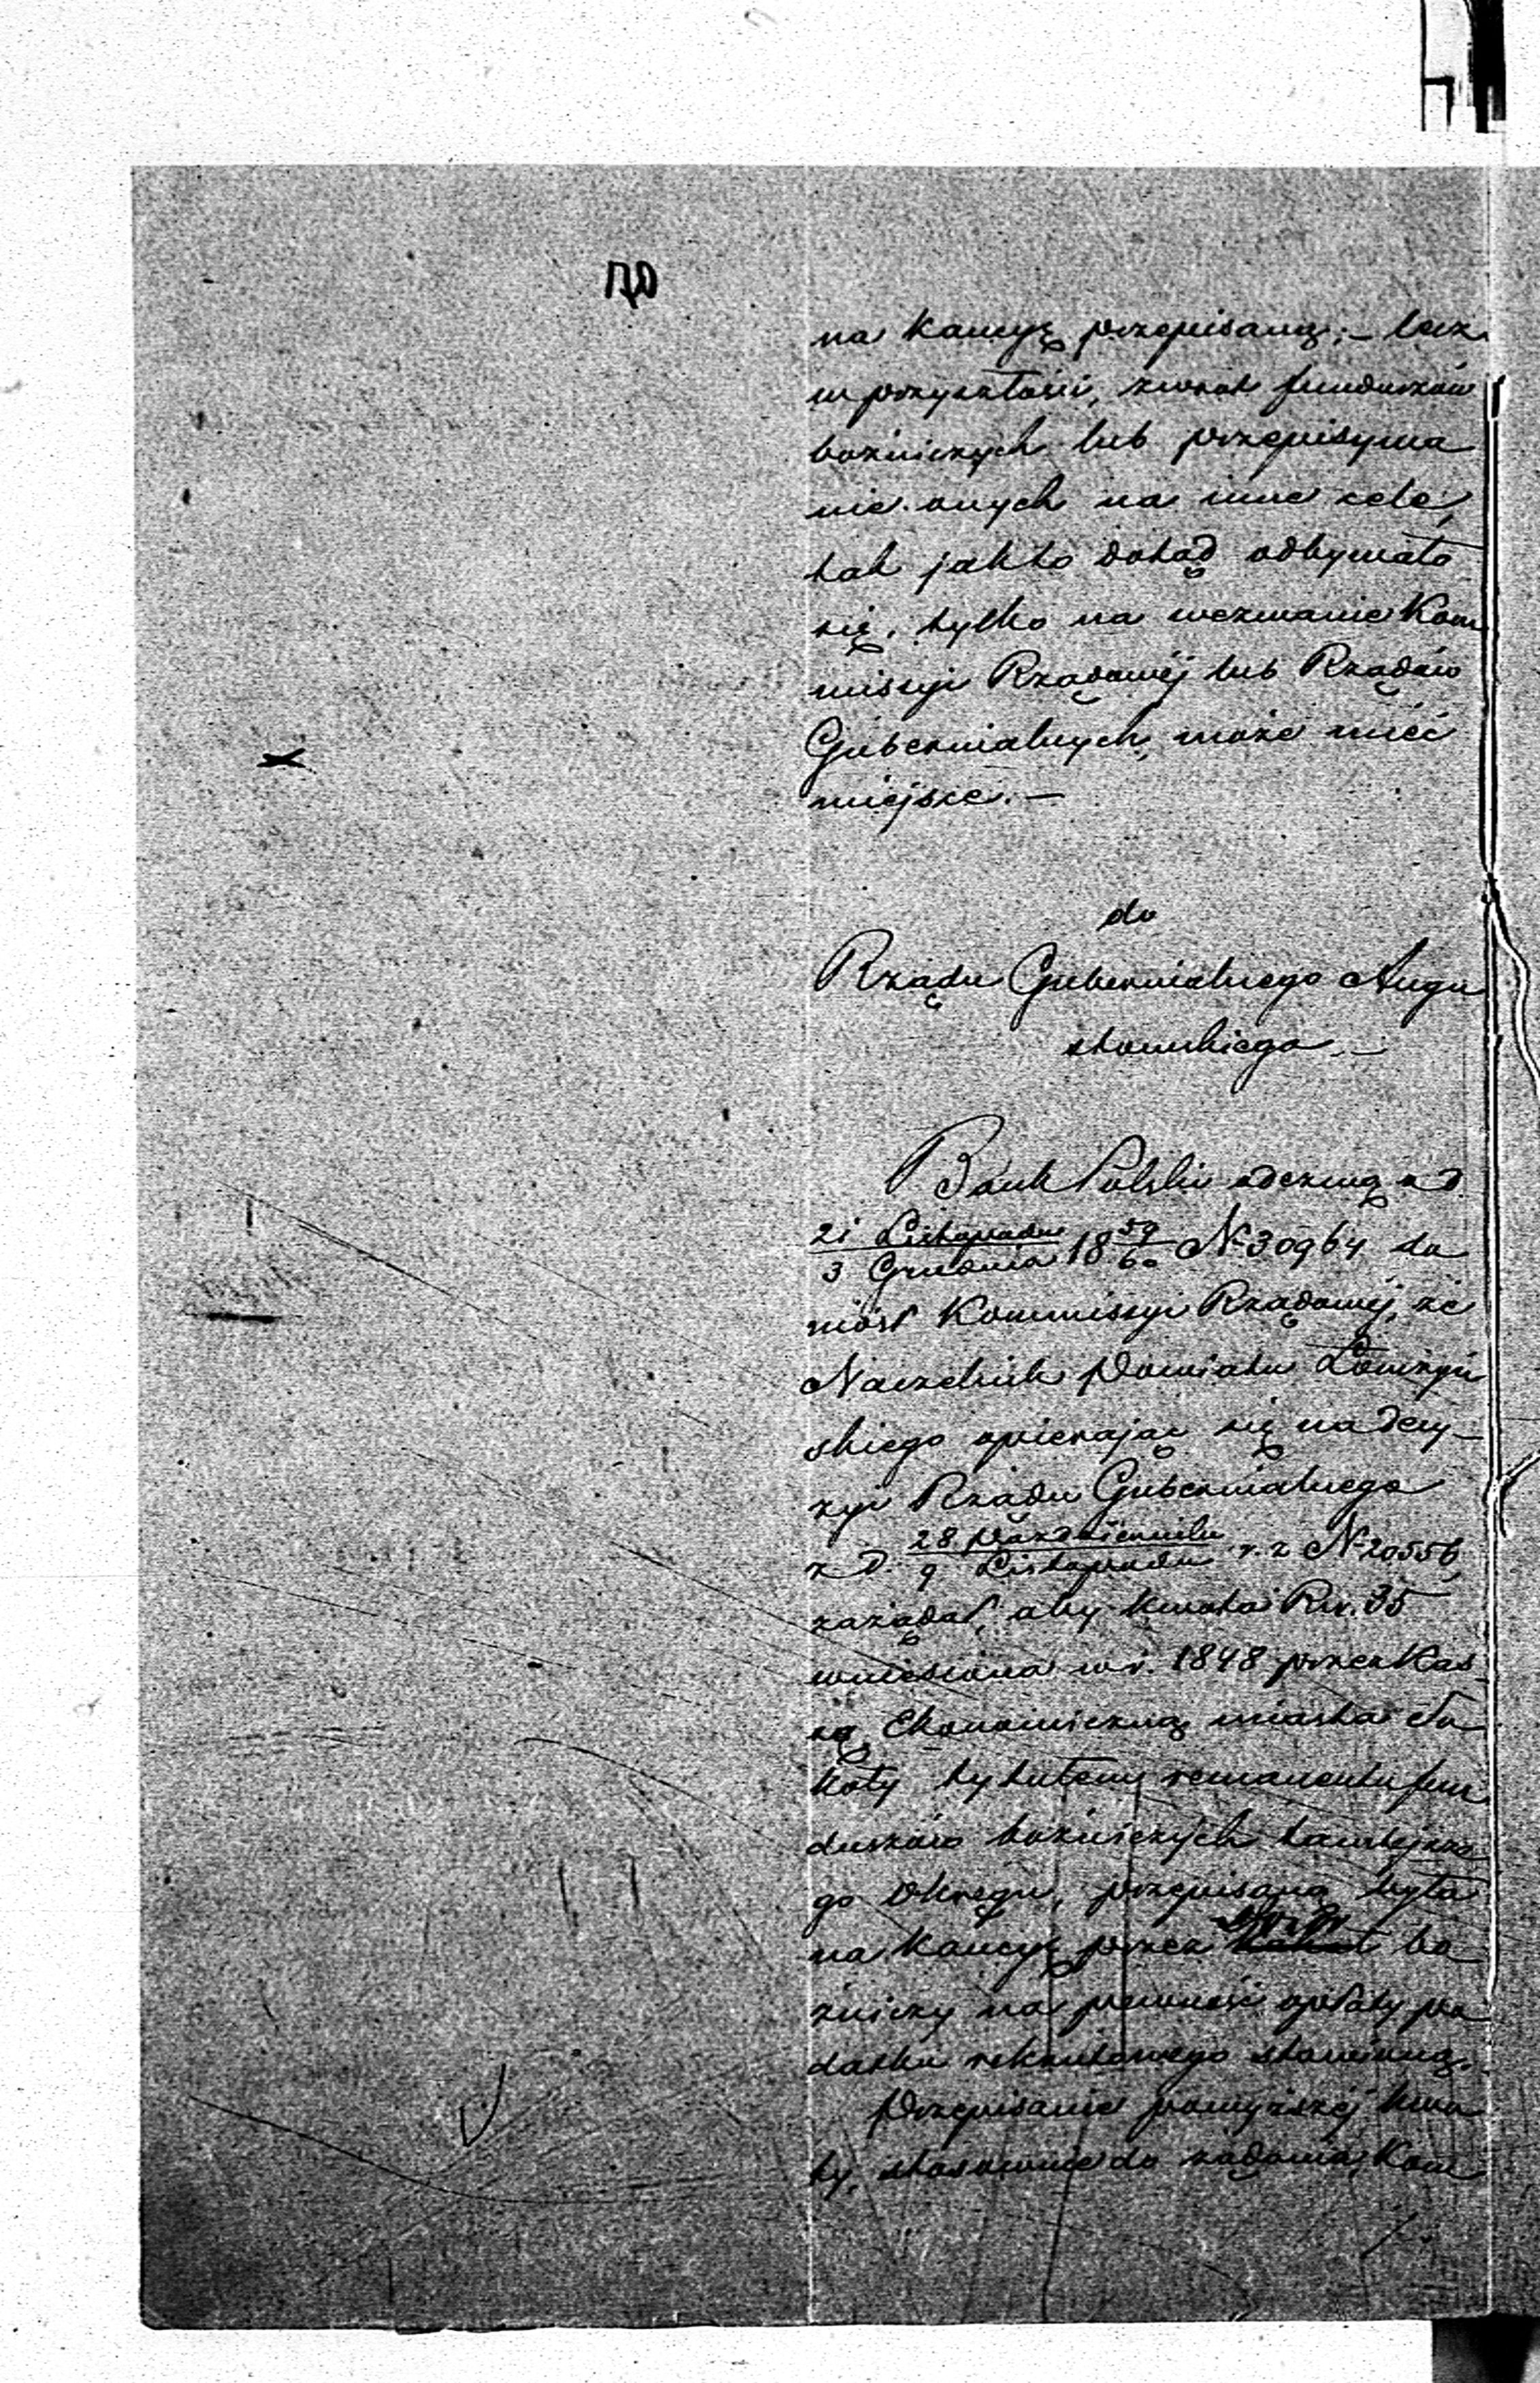 na Kaucyą przepisaną; – lecz
w przyszłości, zwrot funduszów
bożniczych lub przepisywa
nie onych na inne cele,
tak jak to dotąd odbywało
się, tylko na wezwanie Kom
missyi Rządowéj lub Rządów
Gubernialnych, może mieć
miejsce. –
do
Rządu Gubernialnego Augu
stowskiego. –
Bank Polski odezwą z d
21 Listopada
3 Grudnia 18 59/60 N 30964 do
niósł Kommissyi Rządowéj, że
Naczelnik Powiatu Łomżyń
skiego opierając się na decy–
zyi Rządu Gubernialnego
z d. 28 Października
9 Listopada r. z N 20556,
zażądał, aby kwota Rsr. 35
wniesiona w r. 1848 przez Kas
sę Ekonomiczną miasta So
koły tytułem remanentu fun
duszów bożniczych tamtejsze
go Okręgu, przepisaną była
na Kaucyą przez bo
żniczy na pewność opłaty po
datku rekrutowego stawioną.
Przepisanie powyższéj kwo
ty, stosownie do żądania Kom